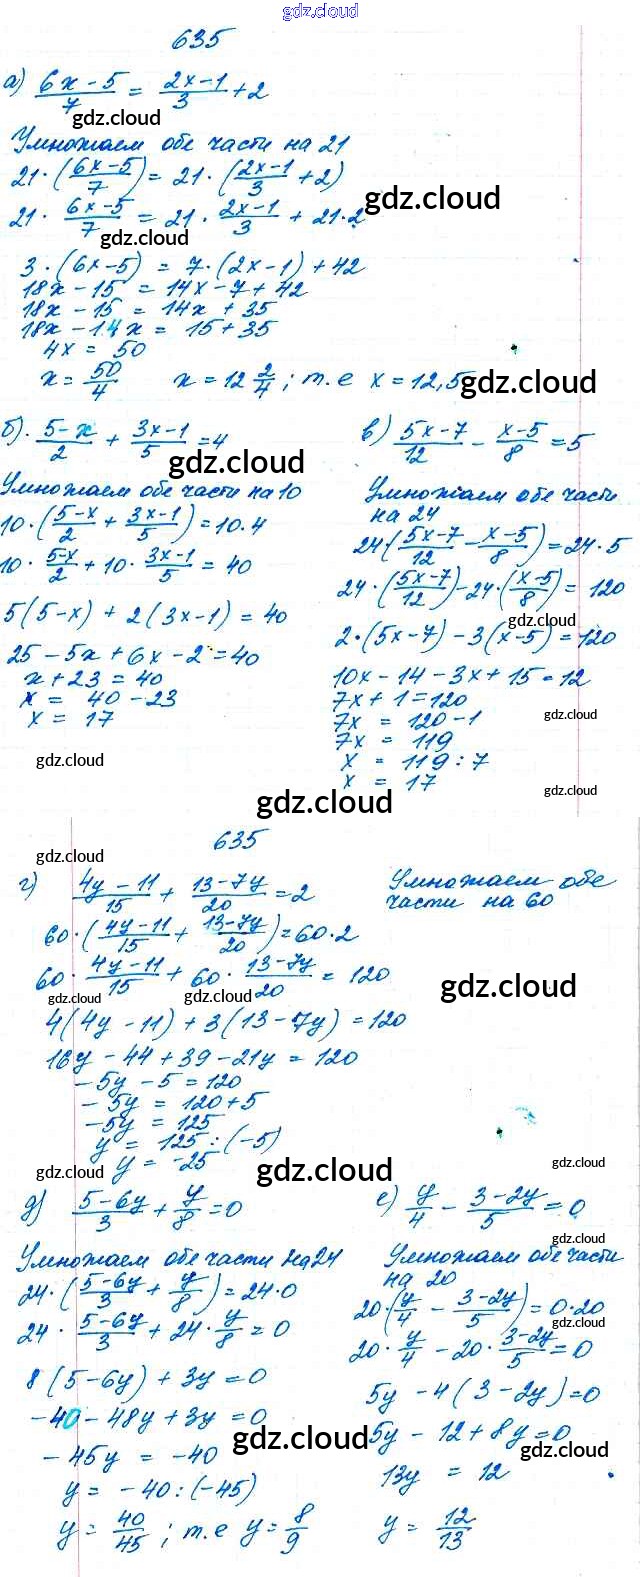 gdz.cloud
635
а) (6x-5)/7 = (2x-1)/3 + 2
gdz.cloud
Умножаем обе части на 21
21·((6x-5)/7) = 21·((2x-1)/3 + 2)
gdz.cloud
21·(6x-5)/7 = 21·(2x-1)/3 + 21·2
gdz.cloud
3·(6x-5) = 7·(2x-1) + 42
18x - 15 = 14x - 7 + 42
18x - 15 = 14x + 35
18x - 14x = 15 + 35
4x = 50
x = 50/4 x = 12 2/4; т.е x = 12,5
gdz.cloud
б). (5-x)/2 + (3x-1)/5 = 4
gdz.cloud
Умножаем обе части на 10
10·((5-x)/2 + (3x-1)/5) = 10·4
10·(5-x)/2 + 10·(3x-1)/5 = 40
5(5-x) + 2(3x-1) = 40
25 - 5x + 6x - 2 = 40
x + 23 = 40
x = 40 - 23
x = 17
gdz.cloud
в) (5x-7)/12 - (x-5)/8 = 5
Умножаем обе части
на 24
24((5x-7)/12 - (x-5)/8) = 24·5
24·((5x-7)/12) - 24·((x-5)/8) = 120
gdz.cloud
2·(5x-7) - 3(x-5) = 120
10x - 14 - 3x + 15 = 12
7x + 1 = 120
gdz.cloud
7x = 120 - 1
7x = 119
x = 119 : 7
x = 17
gdz.cloud
gdz.cloud
635
gdz.cloud
г) (4y-11)/15 + (13-7y)/20 = 2
Умножаем обе
части на 60
60·((4y-11)/15 + (13-7y)/20) = 60·2
60·(4y-11)/15 + 60·(13-7y)/20 = 120
gdz.cloud
gdz.cloud
gdz.cloud
4(4y-11) + 3(13-7y) = 120
16y - 44 + 39 - 21y = 120
-5y - 5 = 120
-5y = 120 + 5
-5y = 125
y = 125 : (-5)
y = -25
gdz.cloud
gdz.cloud
gdz.cloud
д) (5-6y)/3 + y/8 = 0
Умножаем обе части на 24
24·((5-6y)/3 + y/8) = 24·0
24·(5-6y)/3 + 24·y/8 = 0
8(5-6y) + 3y = 0
-40 - 48y + 3y = 0
-45y = -40
gdz.cloud
y = -40 : (-45)
y = 40/45; т.е y = 8/9
е) y/4 - (3-2y)/5 = 0
gdz.cloud
Умножаем обе части
на 20
20·(y/4 - (3-2y)/5) = 0·20
gdz.cloud
20·y/4 - 20·(3-2y)/5 = 0
5y - 4(3-2y) = 0
5y - 12 + 8y = 0
gdz.cloud
13y = 12
y = 12/13